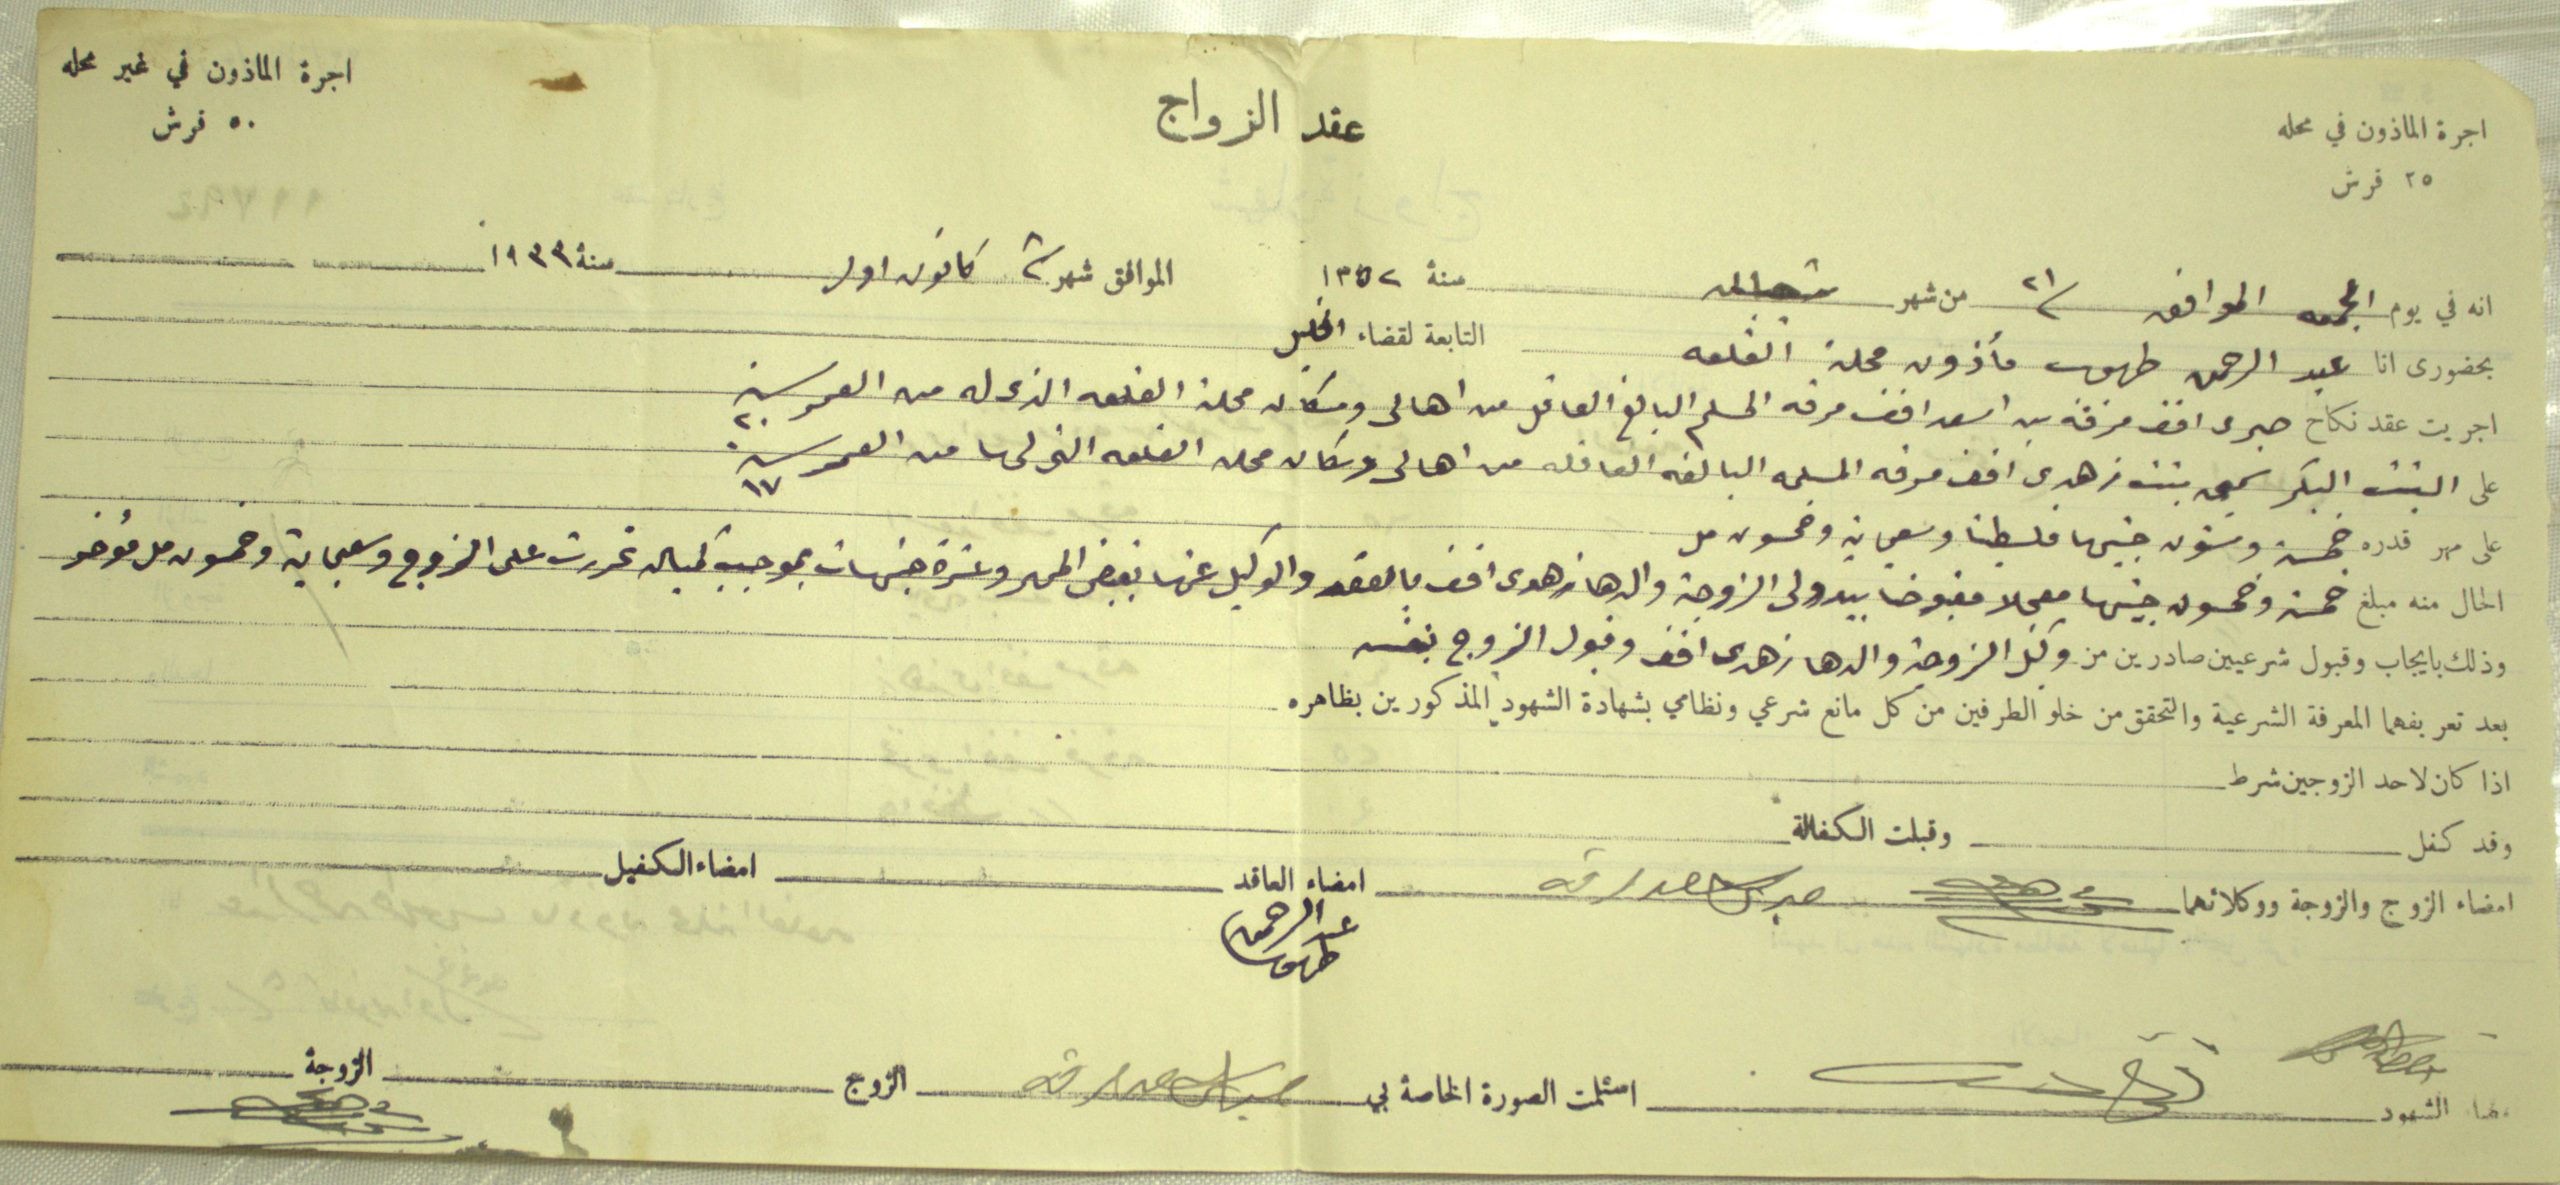 اجرة الماذون في محله
٢٥ قرش
عقد الزواج
اجرة الماذون في غير محله
٥٠ قرش
انه في يوم الجمعه الموافق ٢١ من شهر شعبان سنة ١٣٥٢ الموافق شهر ٨ كانون اول سنة ١٩٣٣
بحضورى انا عبد الرحمن طهبوب مأذون محلة القلعه التابعة لقضاء الخليل
اجريت عقد نكاح صبرى افندى مرقه بن اسعد افندى مرقه المسلم البالغ العاقل من اهالى وسكان محلة القلعه الذى له من العمر سنة ٢٠
على البنت البكر بنت زهدى افندى مرقه المسلمه البالغه العاقله من اهالى وسكان محلة القلعه التى لها من العمر سنة ١٧
على مهر قدره خمسة وستون جنيها فلسطينا وسبعماية وخمسون مل
الحال منه مبلغ خمسة وخمسون جنيها معجلا مقبوضا بيد ولى الزوجة والدها زهدى افندى بالعقد والوكيل عنها بقبض المهر وعشرة جنيهات بموجب كمبياله تحررت على الزوج وسبعماية وخمسون مل مؤخر
وذلك بايجاب وقبول شرعيين صادرين من وكيل الزوجة والدها زهدى افندى وقبول الزوج بنفسه
بعد تعريفهما المعرفة الشرعية والتحقق من خلو الطرفين من كل مانع شرعي ونظامي بشهادة الشهود المذكورين بظاهره
اذا كان لاحد الزوجين شرط
وقد كفل وقبلت الكفالة
امضاء الزوج والزوجة ووكلائهما امضاء العاقد امضاء الكفيل
عبد الرحمن
طهبوب
الشهود استلمت الصورة الخاصة بي الزوج الزوجة